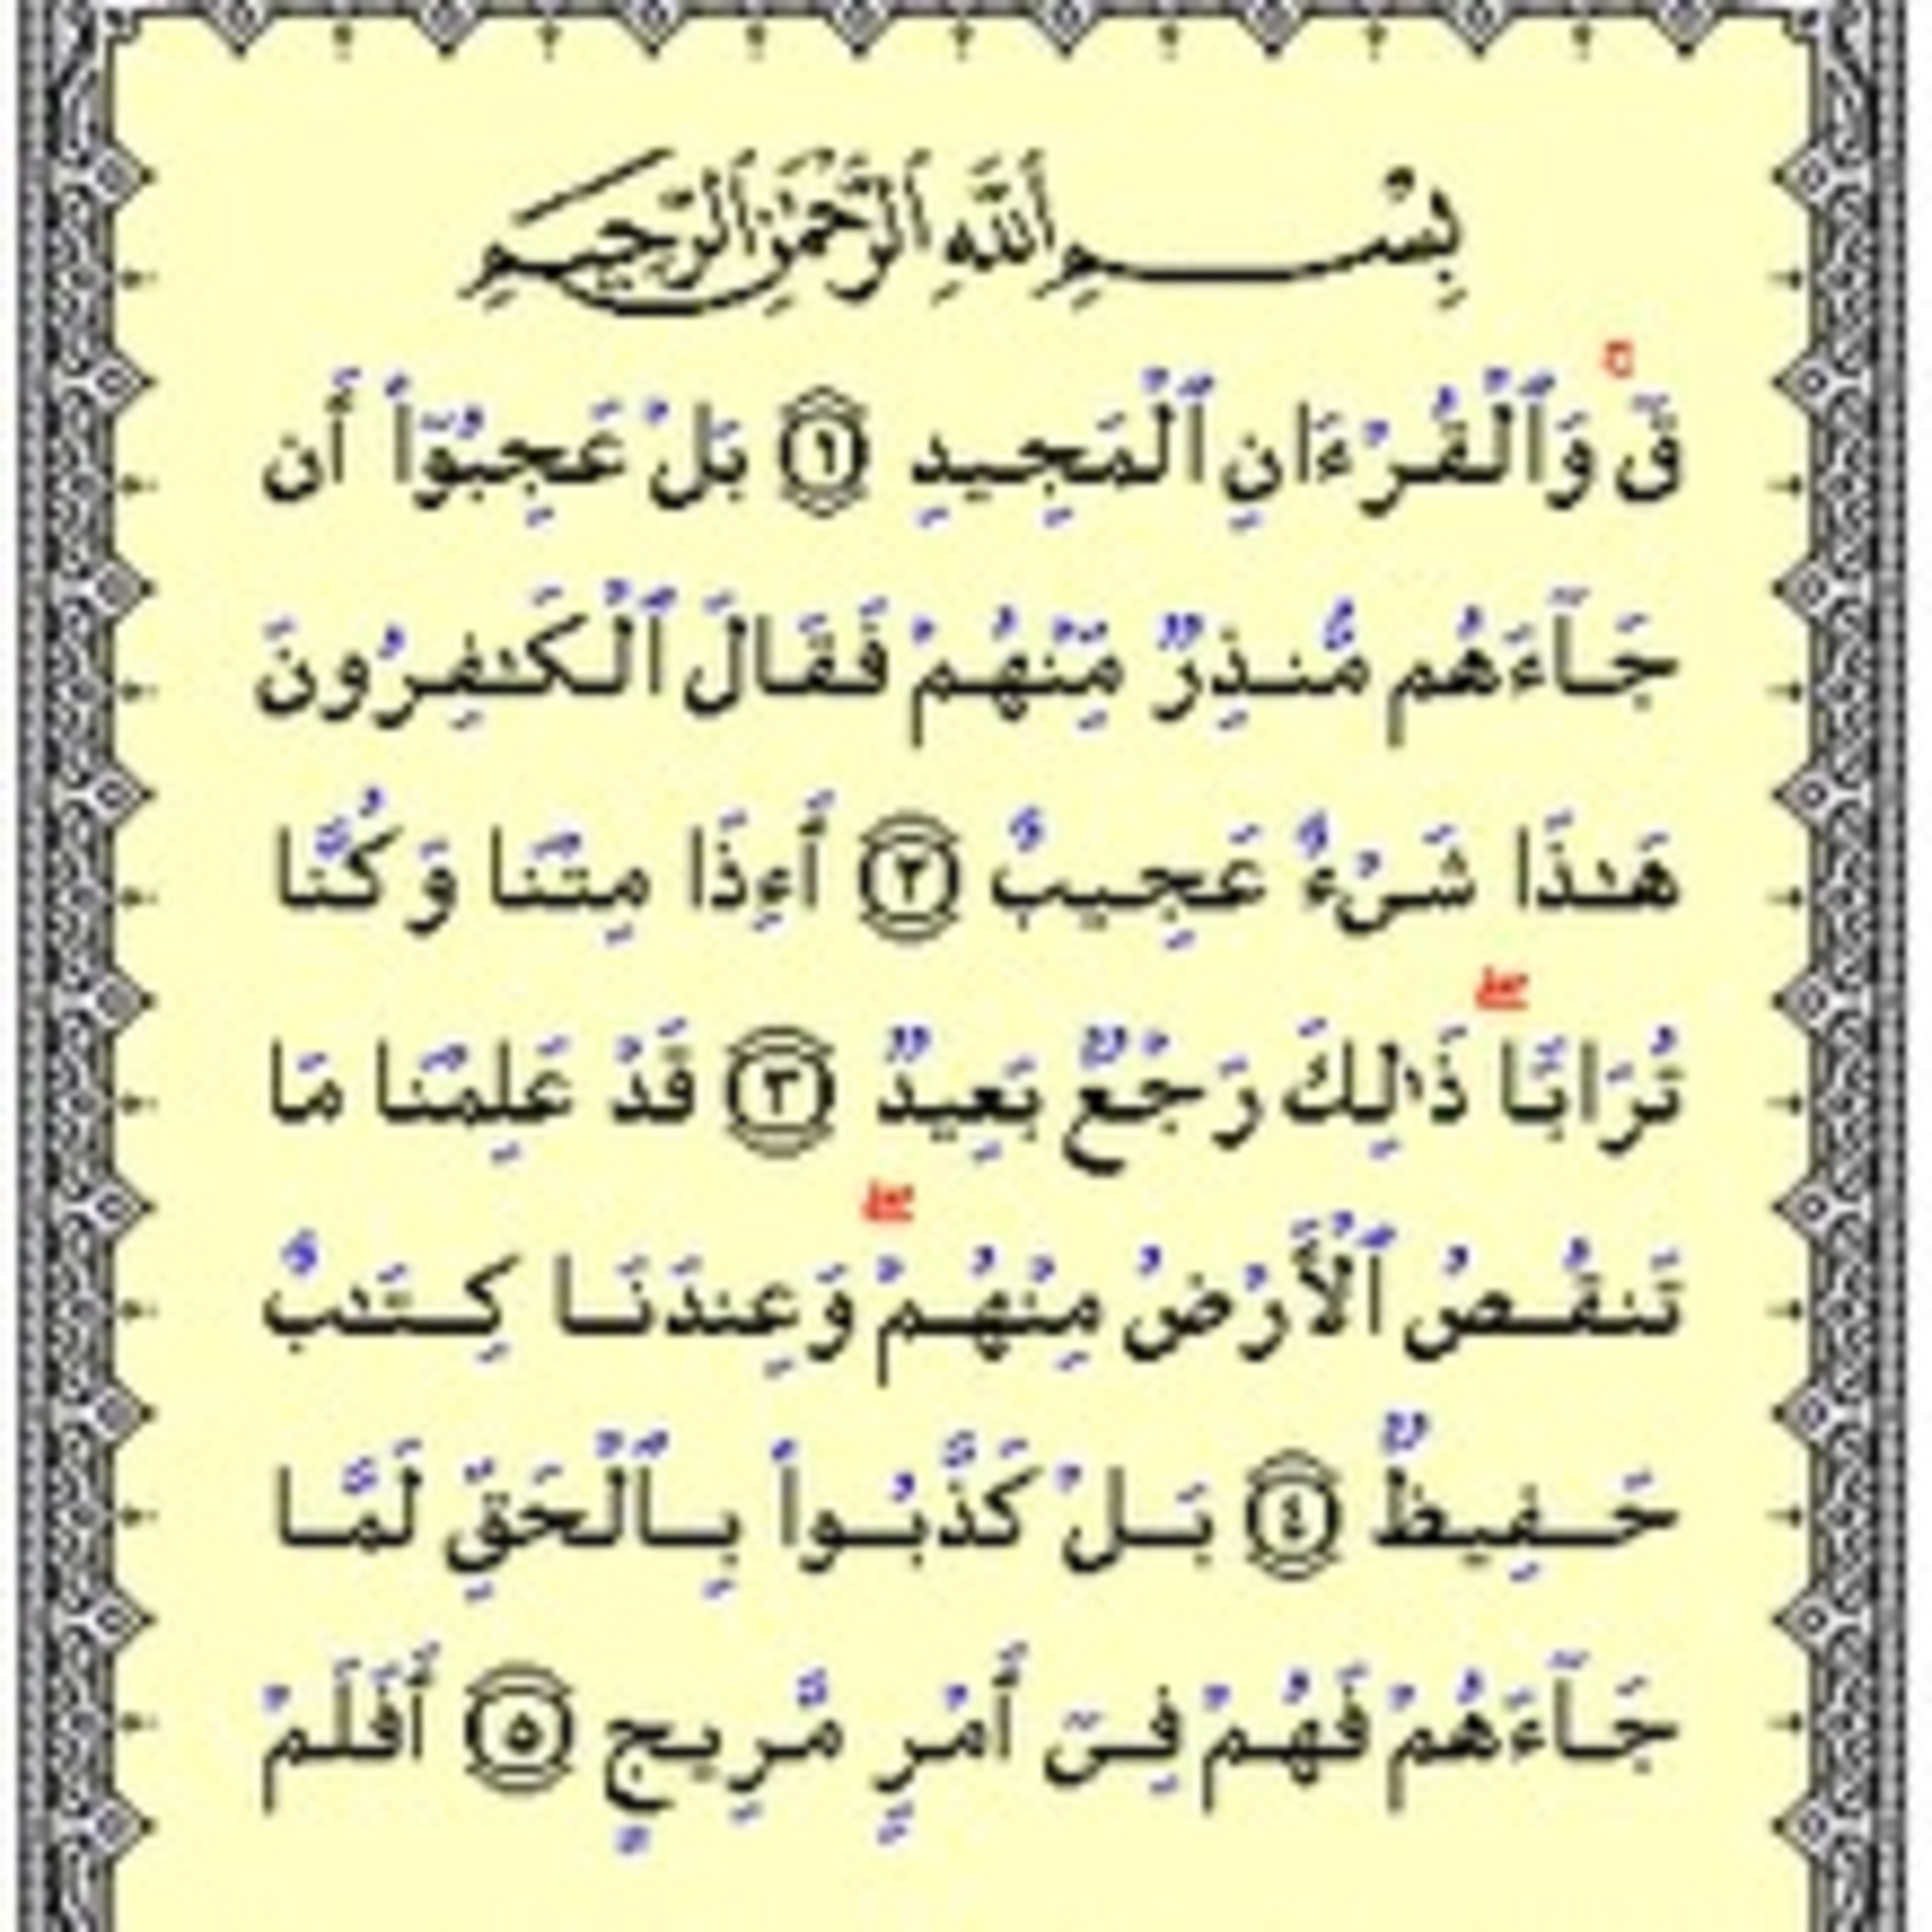 بِسْمِ ٱللَّهِ ٱلرَّحْمَٰنِ ٱلرَّحِيمِ
قٓ ۚ وَٱلْقُرْءَانِ ٱلْمَجِيدِ ١ بَلْ عَجِبُوٓا۟ أَن
جَآءَهُم مُّنذِرٌ مِّنْهُمْ فَقَالَ ٱلْكَٰفِرُونَ
هَٰذَا شَىْءٌ عَجِيبٌ ٢ أَءِذَا مِتْنَا وَكُنَّا
تُرَابًا ۖ ذَٰلِكَ رَجْعٌۢ بَعِيدٌ ٣ قَدْ عَلِمْنَا مَا
تَنقُصُ ٱلْأَرْضُ مِنْهُمْ ۖ وَعِندَنَا كِتَٰبٌ
حَفِيظٌۢ ٤ بَلْ كَذَّبُوا۟ بِٱلْحَقِّ لَمَّا
جَآءَهُمْ فَهُمْ فِىٓ أَمْرٍ مَّرِيجٍ ٥ أَفَلَمْ